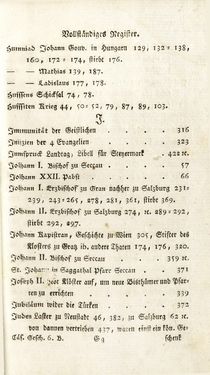 Vollständiges Register.
Hunniad Johann Gouv. in Hungarn 129, 132=138,
160, 172=174, stirbt 176.
— — Mathias 139, 187.
— — Ladislaus 177, 178.
Hussens Schicksal 74, 78.
Hussiten Krieg 44, 50=52, 79, 87, 89, 103.
J.
Immunität der Geistlichen . . 316
Initien der 4 Evangelien . . 323
Innspruck Landtag, Libell für Steyermark 422 ꝛc.
Johann I. Bischof zu Seccau . . 57
Johann XXII. Pabst . . 66
Johann I. Erzbischof zu Gran nachher zu Salzburg 231=
239, 243=265, 278, 281, 361, stirbt 369.
Johann II. Erzbischof zu Salzburg 274, ꝛc. 289=292,
stirbt 292, 297.
Johann Kapistran, Geschichte zu Wien 305, Stifter des
Klosters zu Graz ib. andere Thaten 174, 176, 320.
Johann II. Bischof zu Seccau . . 359 ꝛc.
St. Johann in Saggathal Pfarr Seccau . 371
Joseph II. hebt Klöster auf, um neue Bisthümer und Pfar=
ren zu errichten . . 339
Jubiläum wider die Türken . . 372
Judes Laster zu Neustadt 46, 382, zu Salzburg 62 ꝛc.
von dannen vertrieben 437, waren einst ein kös. Ge=
Cäs. Gesch. 6. B. Gg schenk